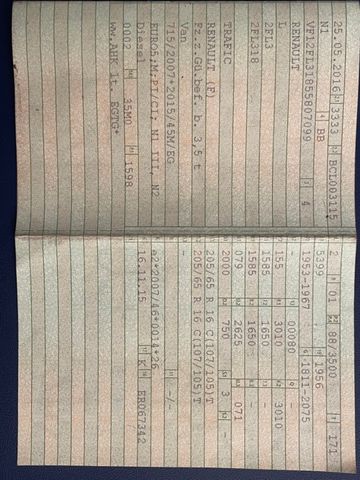 25.05.2016 3333 BCL003115
N1 BB
VF12FL31855807099 4
RENAULT
L
2FL3
2FL318
TRAFIC
RENAULT (F)
Fz.z.Gü.bef. b. 3,5 t
Van
715/2007*2015/45M/EG
EURO5;M;PI/CI; N1 III, N2
Diesel
0002 35M0 1598
ww.AHK lt. EGTG*
2 01 88/3500 171
5399 1956
1953-1967 1811-2075
- 00080 -
155 3010 3010
1585 1650 -
1585 1650 -
079 2625 071
2000 750 3 -
205/65 R 16 C(107/105)T
205/65 R 16 C(107/105)T
-
- -/-
e2*2007/46*0014*26
16.11.15 K ER067342